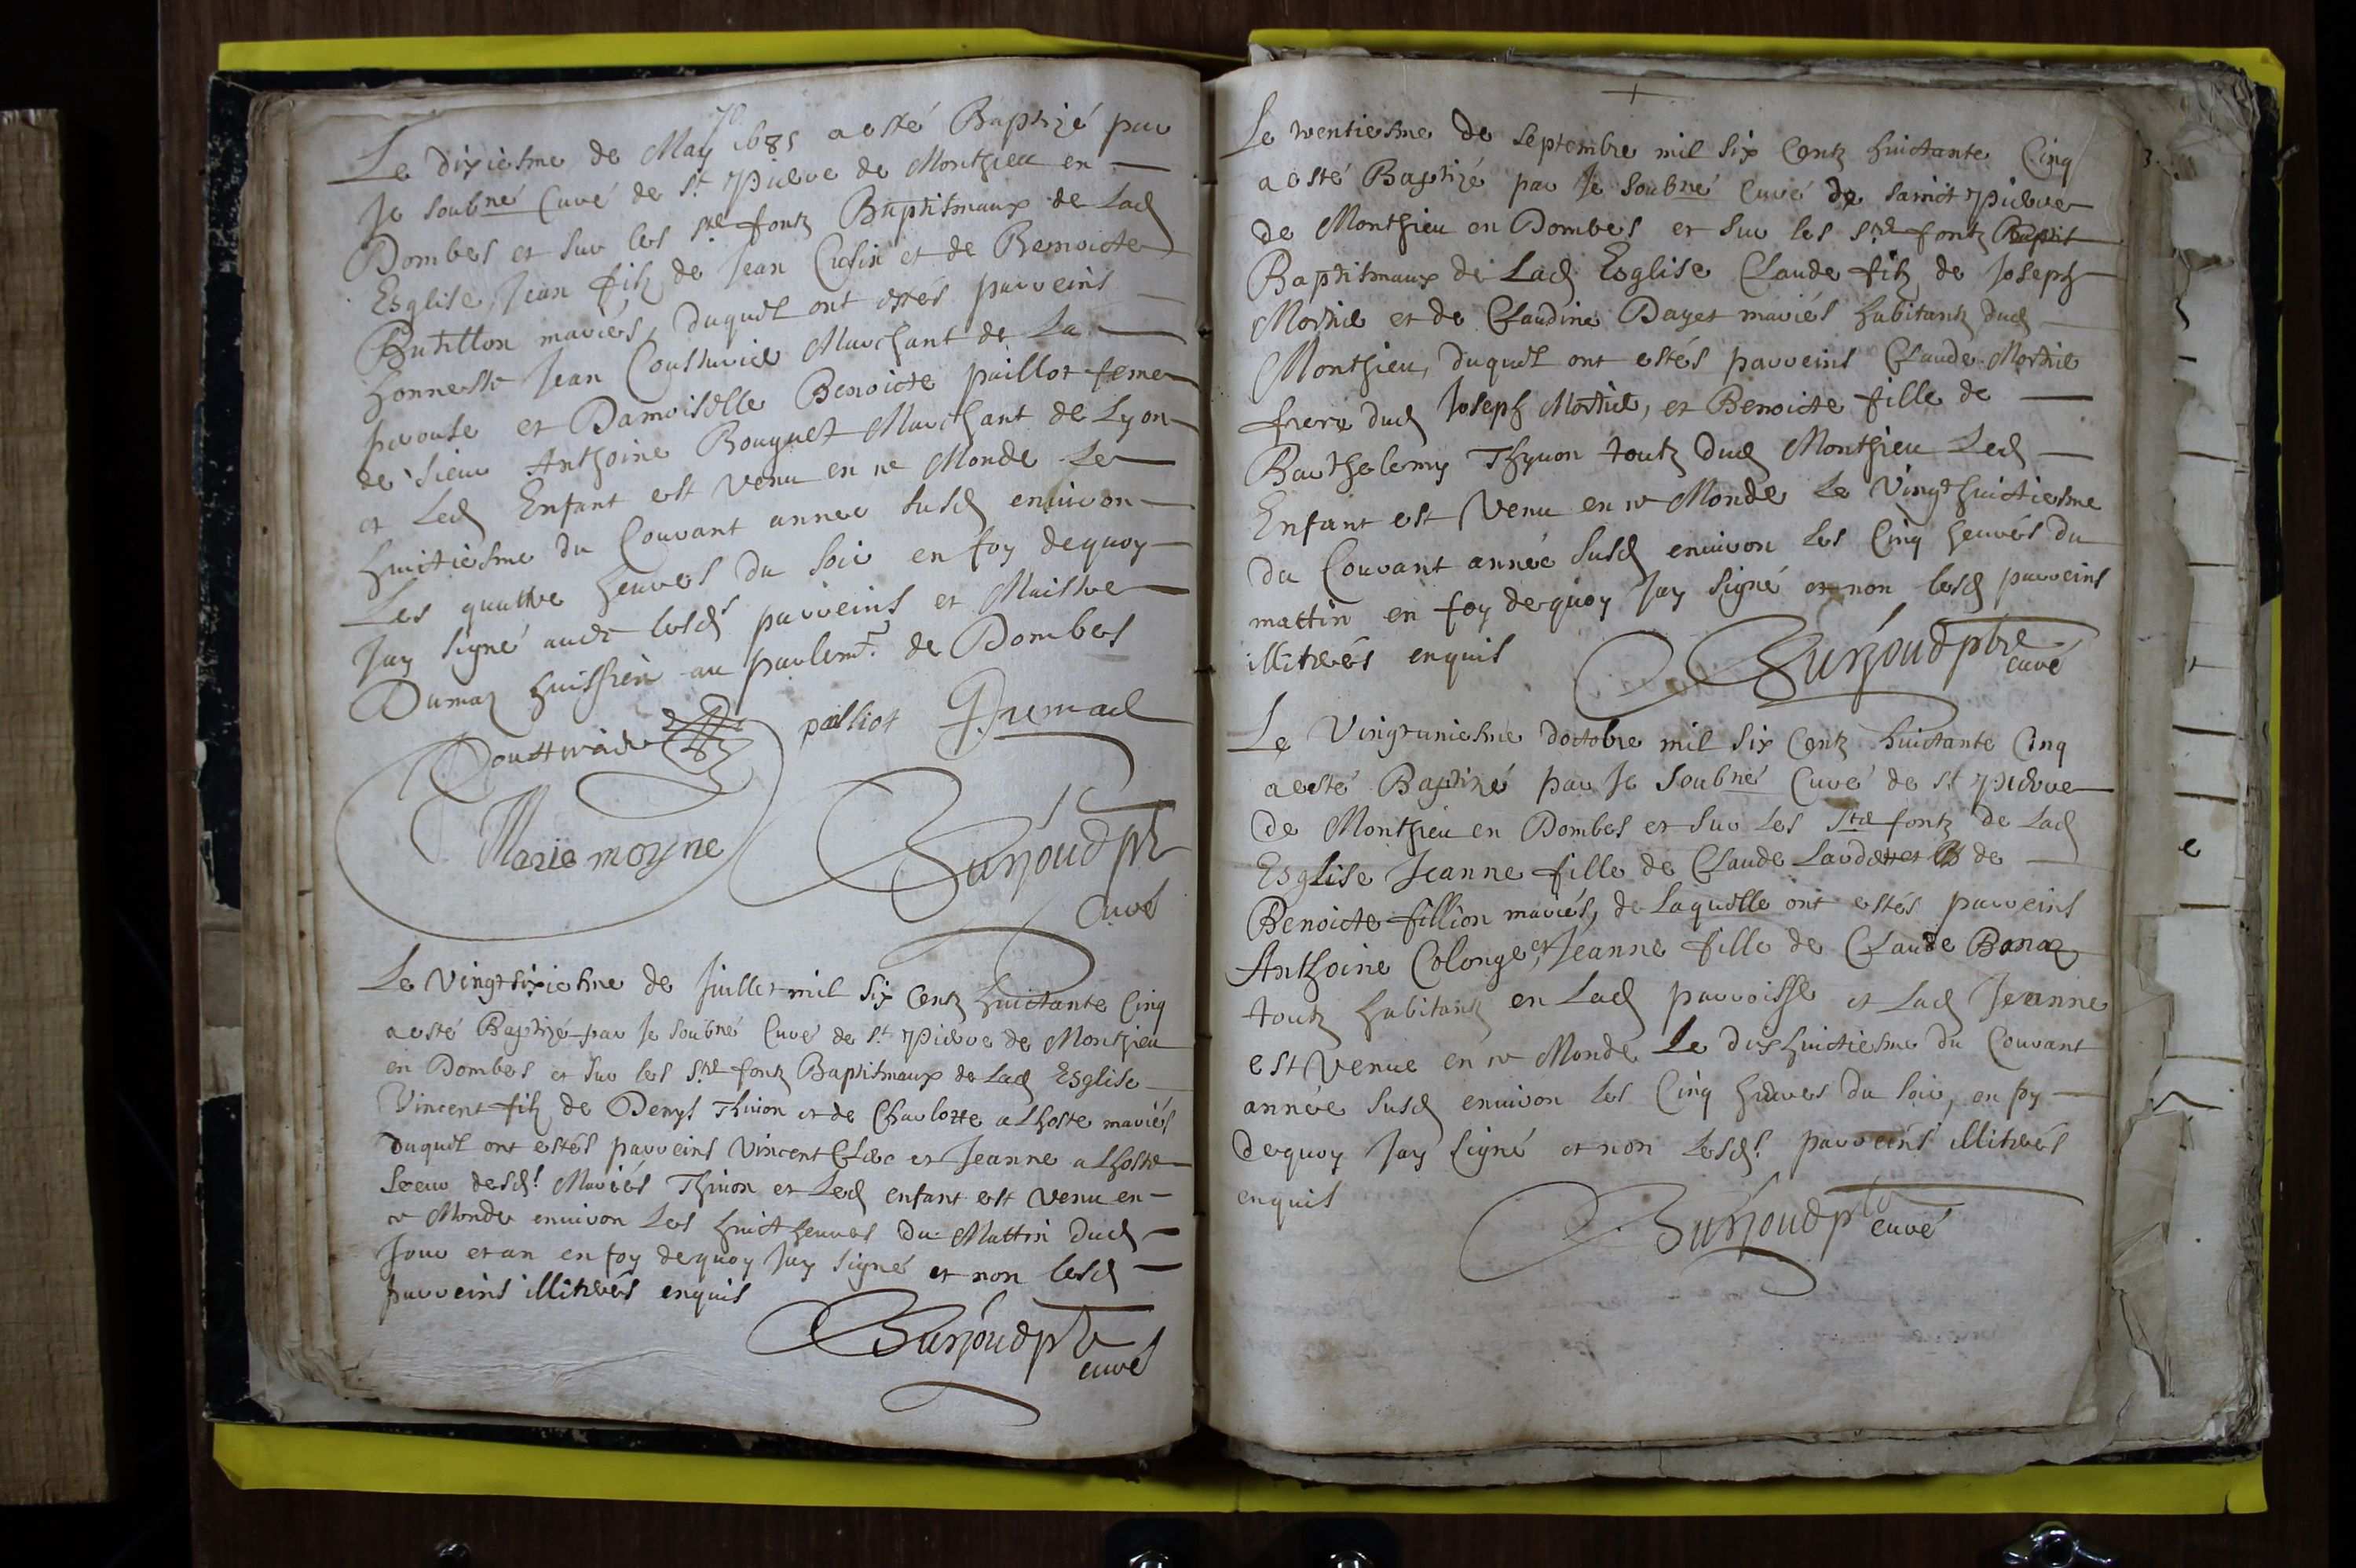 Le dixiesme de May 1685 a esté Baptizé par
Je soubné Curé de St Pierre de Monthieu en
Dombes et sur les Stes fontz Baptismaux de Lad
Esglise, Jean filz de Jean Cusin et de Benoicte
Butillon mariés, duquel ont estés parreins
honneste Jean Cousturier Marchant de La
parouse et Damoiselle Benoicte paillot feme
de Sieur Anthoine Bouquet Marchant de Lyon
et Led Enfant est venu en ce Monde Le
huitiesme du Courant annee Susd environ
Les quattre heures du Soir en foy dequoy
Jay Signé avec lesds parreins et Maistre
Dumaz huissier au parlemt de Dombes
palliot Dumaz
Marie moyne
Burjoud ptr
Curé
Le Vingtsixiesme de Juillet mil Six Centz huictante Cinq
a esté Baptizé par Je soubné Curé de St Pierre de Monthieu
en Dombes et Sur les Stes fontz Baptismaux de Lad Esglise
Vincent filz de Denys Thiuon et de Charlotte alhoste mariés
duquel ont estés parreins Vincent Clerc et Jeanne alhoste
Soeur desds Mariés Thiuon et Led enfant est venu en
ce Monde environ Les huict heures du Mattin dud
Jour et an en foy dequoy Jay Signé et non lesd
parreins illiterés enquis
Burjoud ptr
curé
Le trentiesme de Septembre mil Six Centz huictante Cinq
a esté Baptizé par Je soubné Curé de Sainct Pierre
de Monthieu en Dombes et Sur les Stes fontz
Baptismaux de Lad Esglise Claude filz de Joseph
Mortier et de Claudine Dayet mariés habitantz dud
Monthieu, duquel ont estés parreins Claude Mortier
frere dud Joseph Mortier, et Benoicte fille de
Barthelemy Thyuon toutz dud Monthieu Led
Enfant est Venu en ce Monde Le Vingthuictiesme
du Courant année Susd environ les Cinq heures du
mattin en foy dequoy Jay Signé et non lesd parreins
illiterés enquis
Burjoud ptre
curé
Le Vingtuniesme doctobre mil Six Centz huictante Cinq
a esté Baptizé par Je Soubné Curé de St Pierre
de Monthieu en Dombes et Sur Les Stes fontz de Lad
Esglise Jeanne fille de Claude Lardet et de
Benoicte fillion mariés, de Laquelle ont estés parreins
Anthoine Colonge, et Jeanne fille de Claude
toutz habitantz en Lad parroisse et Lad Jeanne
est Venue en ce Monde Le dixhuictiesme du Courant
année Susd environ les Cinq heures du Soir, en foy
dequoy Jay Signé et non Lesds parreins illiterés
enquis
Burjoud ptr
curé